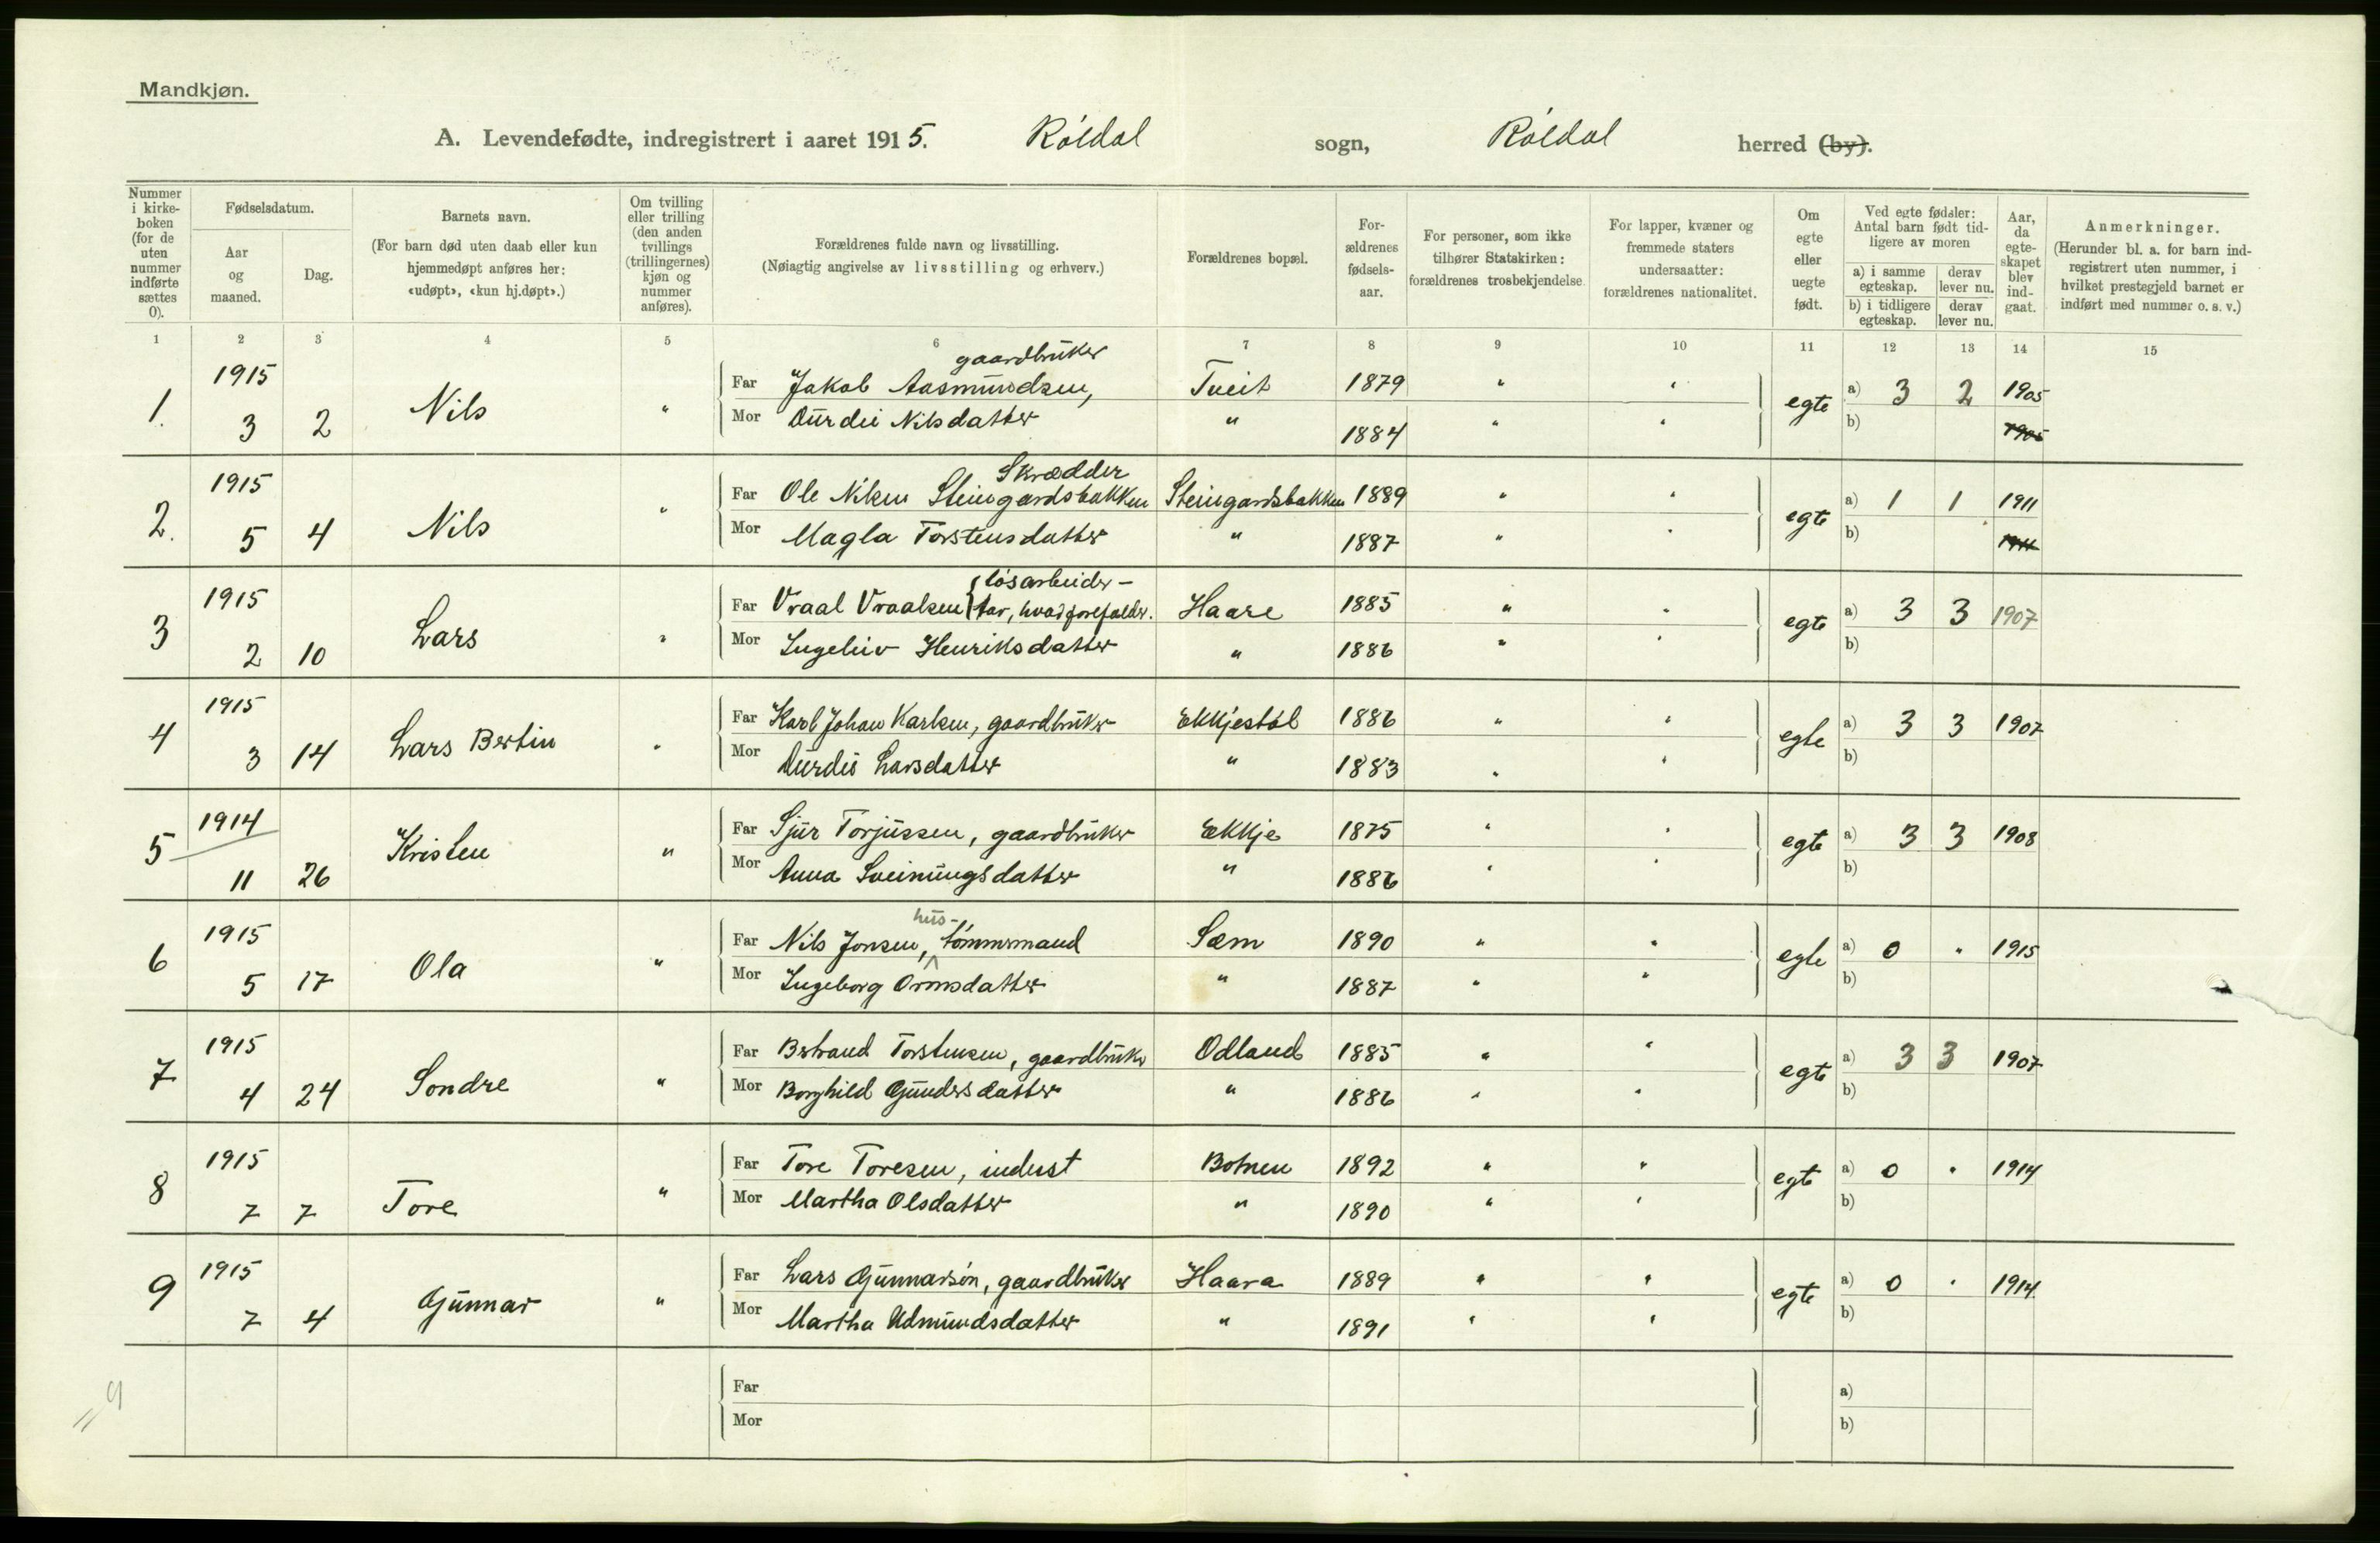 Mandkjøn.
A. Levendefødte, indregistrert i aaret 1915. Róldal sogn, Róldal herred (by).
Nummer i kirke-boken (for de uten nummer indførte sættes 0).
Fødselsdatum.
Aar og maaned.
Dag.
Barnets navn.
(For barn død uten daab eller kun hjemmedøpt anføres her: «udøpt», «kun hj.døpt».)
Om tvilling eller trilling (den anden tvillings (trillingernes) kjøn og nummer anføres).
Forældrenes fulde navn og livsstilling.
(Nøiagtig angivelse av livsstilling og erhverv.)
Forældrenes bopæl.
For-ældrenes fødsels-aar.
For personer, som ikke tilhører Statskirken: forældrenes trosbekjendelse.
For lapper, kvæner og fremmede staters undersaatter: forældrenes nationalitet.
Om egte eller uegte født.
Ved egte fødsler: Antal barn født tid-ligere av moren
a) i samme egteskap.
derav lever nu.
b) i tidligere egteskap.
derav lever nu.
Aar, da egte-skapet blev ind-gaat.
Anmerkninger.
(Herunder bl. a. for barn ind-registrert uten nummer, i hvilket prestegjeld barnet er indført med nummer o. s. v.)
1 2 3 4 5 6 7 8 9 10 11 12 13 14 15
gaardbruker
1. 1915 Nils " Far Jakob Aasmundsen, Tveit 1879 " " egte a) 3 2 1905
3 2 Mor Durdei Nilsdatter " 1884 " " b) 1905
Skrædder
2. 1915 Nils " Far Ole Nilsen Steingardsbakken Steingardsbakken 1889 " " egte a) 1 1 1911
5 4 Mor Magla Torstensdatter " 1887 " " b) 1911
lósarbeider -
3 1915 Lars " Far Vraal Vraalsen tar, hvad forefalder. Haare 1885 " " egte a) 3 3 1907
2 10 Mor Ingeleiv Henriksdatter " 1886 " " b)
4 1915 Lars Bertin " Far Karl Johan Karlsen, gaardbruker Ekkjestól 1886 " " egte a) 3 3 1907
3 14 Mor Durdei Larsdatter " 1883 " " b)
5 1914 Kristen " Far Sjur Torjussen, gaardbruker Ekkje 1875 " " egte a) 3 3 1908
11 26 Mor Anna Sveinungsdatter " 1886 " " b)
hus-
6 1915 Ola " Far Nils Jonsen, tómmermand Sæm 1890 " " egte a) 0 " 1915
5 17 Mor Ingeborg Ormsdatter " 1887 " " b)
7 1915 Sondre " Far Bertrand Torstensen, gaardbruker Odland 1885 " " egte a) 3 3 1907
4 24 Mor Borghild Gundersdatter " 1886 " " b)
8 1915 Tore " Far Tore Toresen, inderst Botnen 1892 " " egte a) 0 " 1914
7 7 Mor Martha Olsdatter " 1890 " " b)
9 1915 Gunnar " Far Lars Gunnarsón, gaardbruker Haara 1889 " " egte a) 0 " 1914
7 4 Mor Martha Admundsdatter " 1891 " " b)
9 Far a)
Mor b)